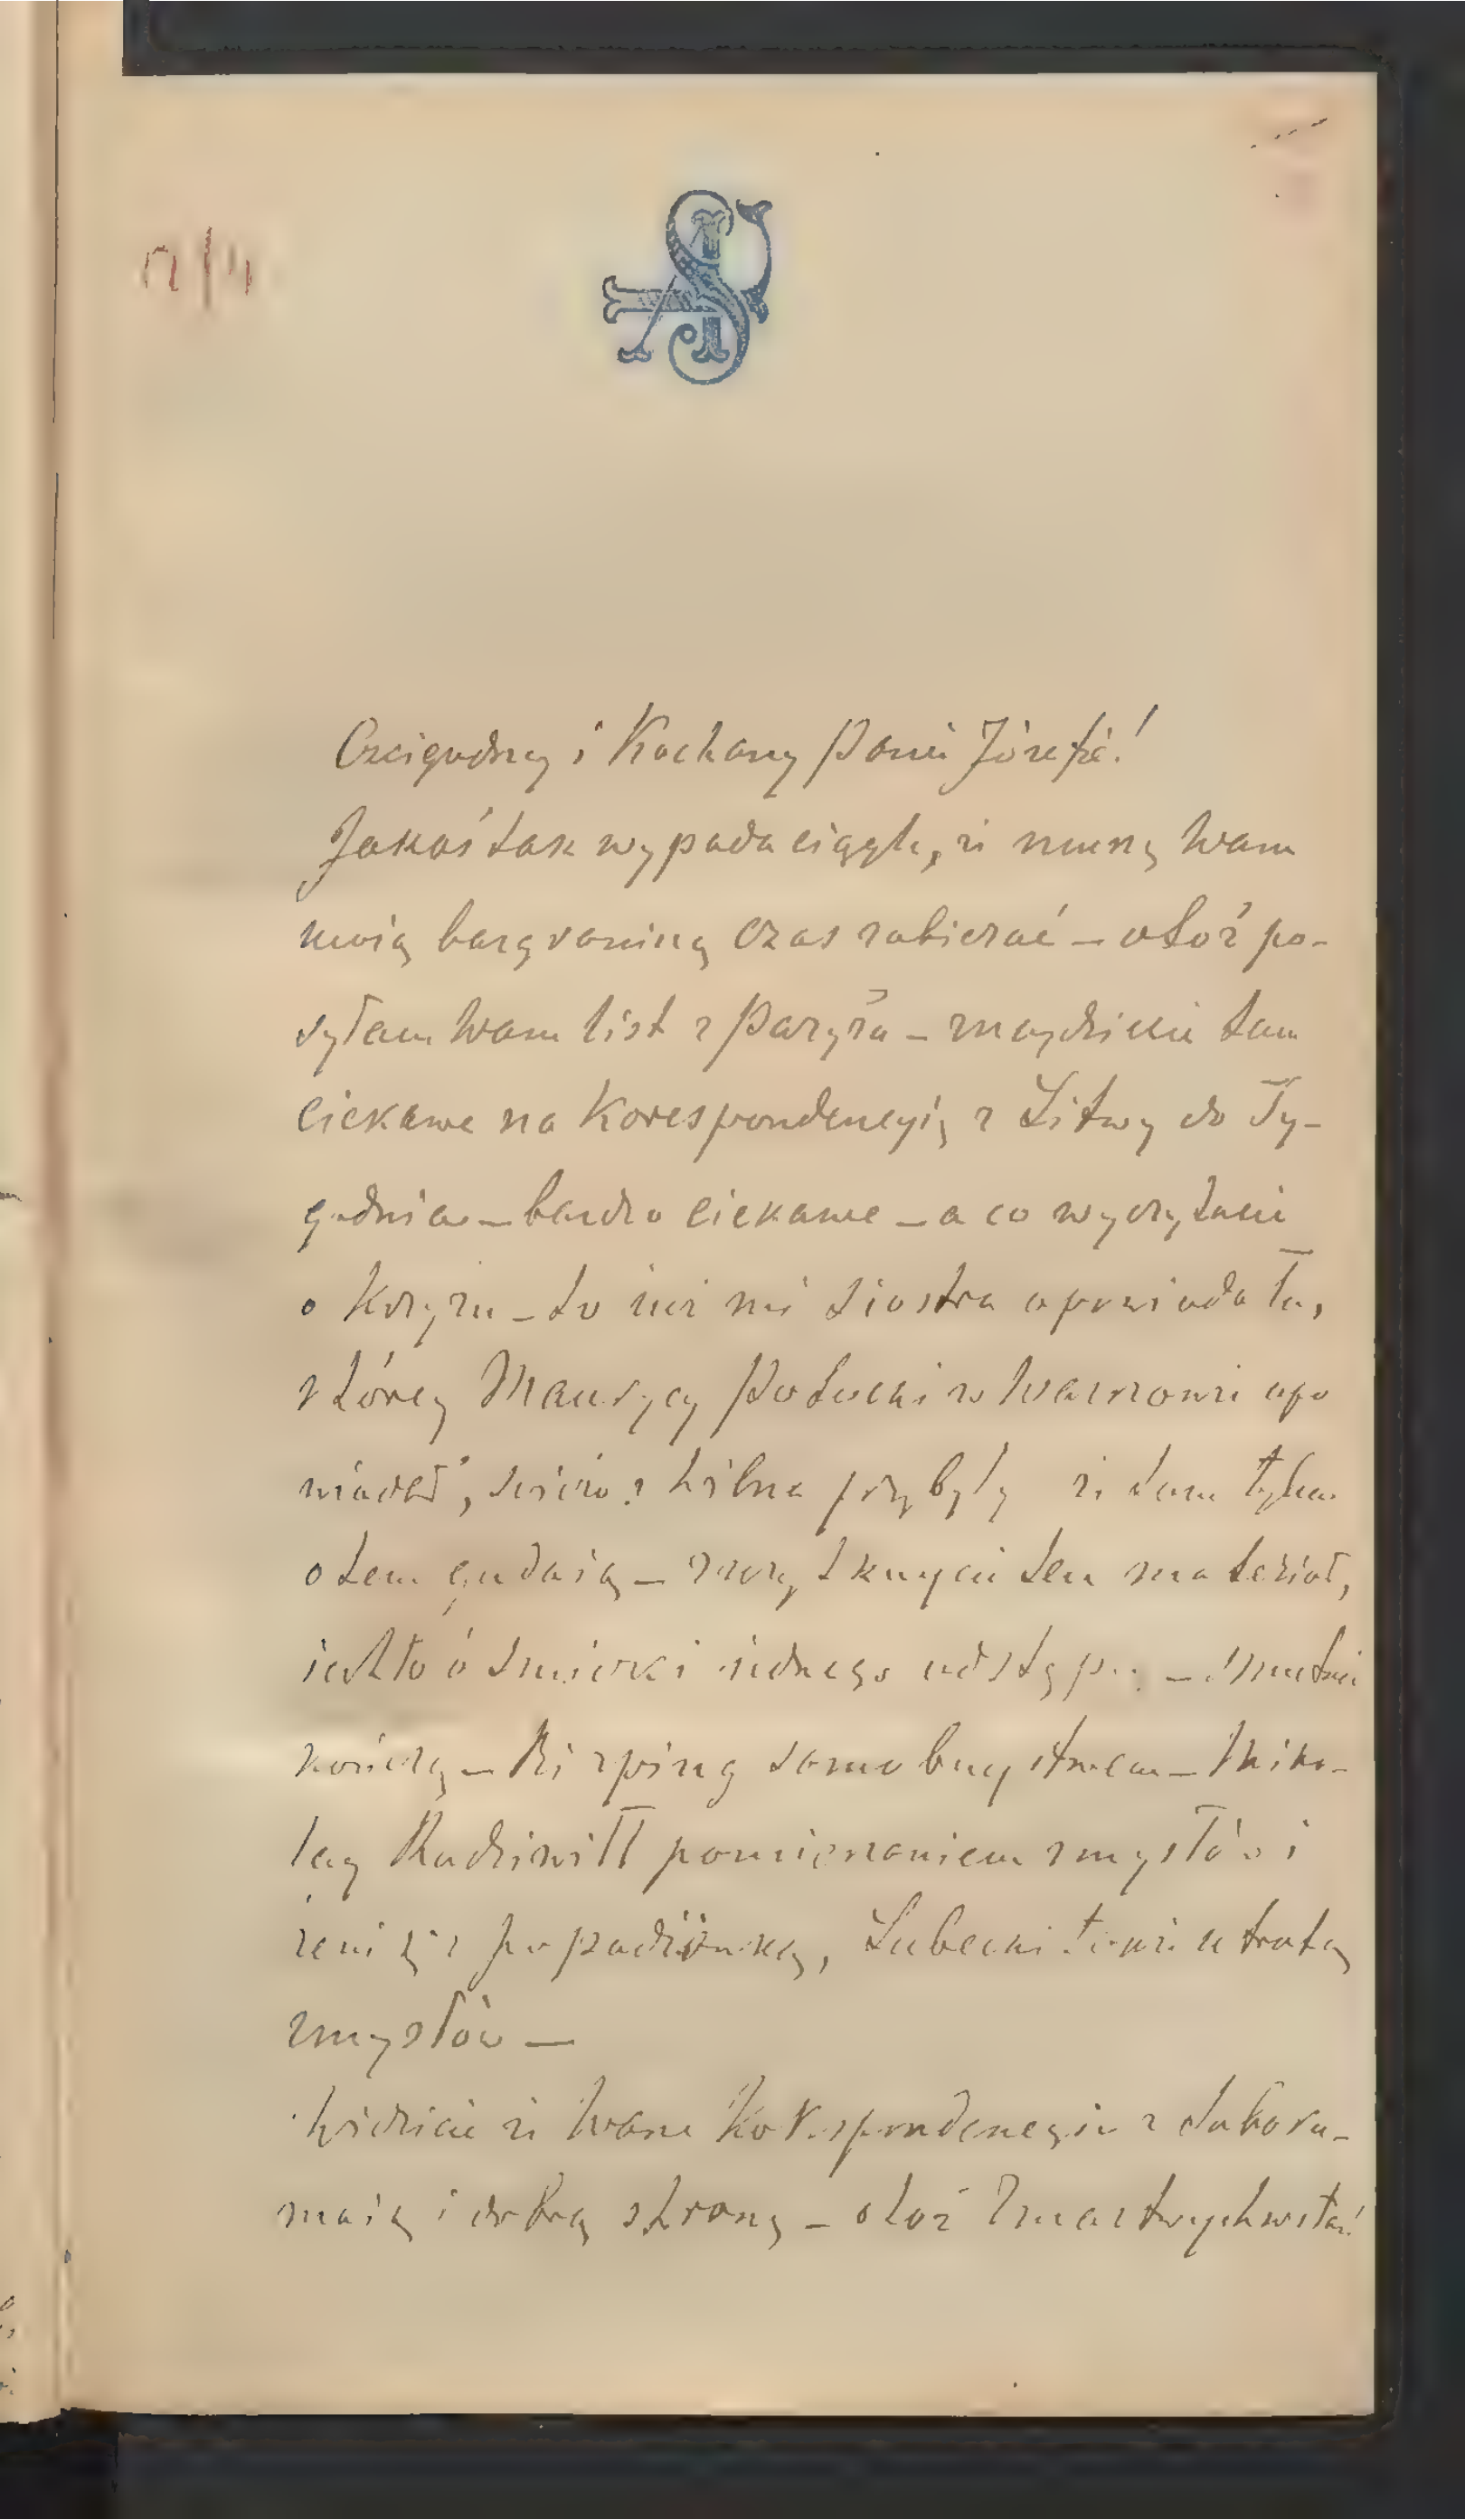 Czcigodny i Kochany Panie Józefie!
Jakoś tak wypada ciągle, że muszę Wam
moią bazgraniną czas zabierać – otóż po-
syłam Wam list z Paryża – znajdziecie tam
ciekawe na Korespondencyię z Litwy do Ty-
godnia – bardzo ciekawe – a co wyczytacie
o – to mi siostra opowiadała,
której Maurycy Potocki w Warszawie opo
wiadał, z Wilna przybyły że tam tylko
o tem gadaią – ten materiał,
iednego odstępu – smutnie
kończą – samobuystwem – Miko-
łay Radziwiłł pomięszaniem zmysłów i
żeni się z popadzianką, Lubecki także utratą
zmysłów –
Widzicie że Wasze Korespondencyie z
maią i dobrą stronę – otóż Zmartwychwstań